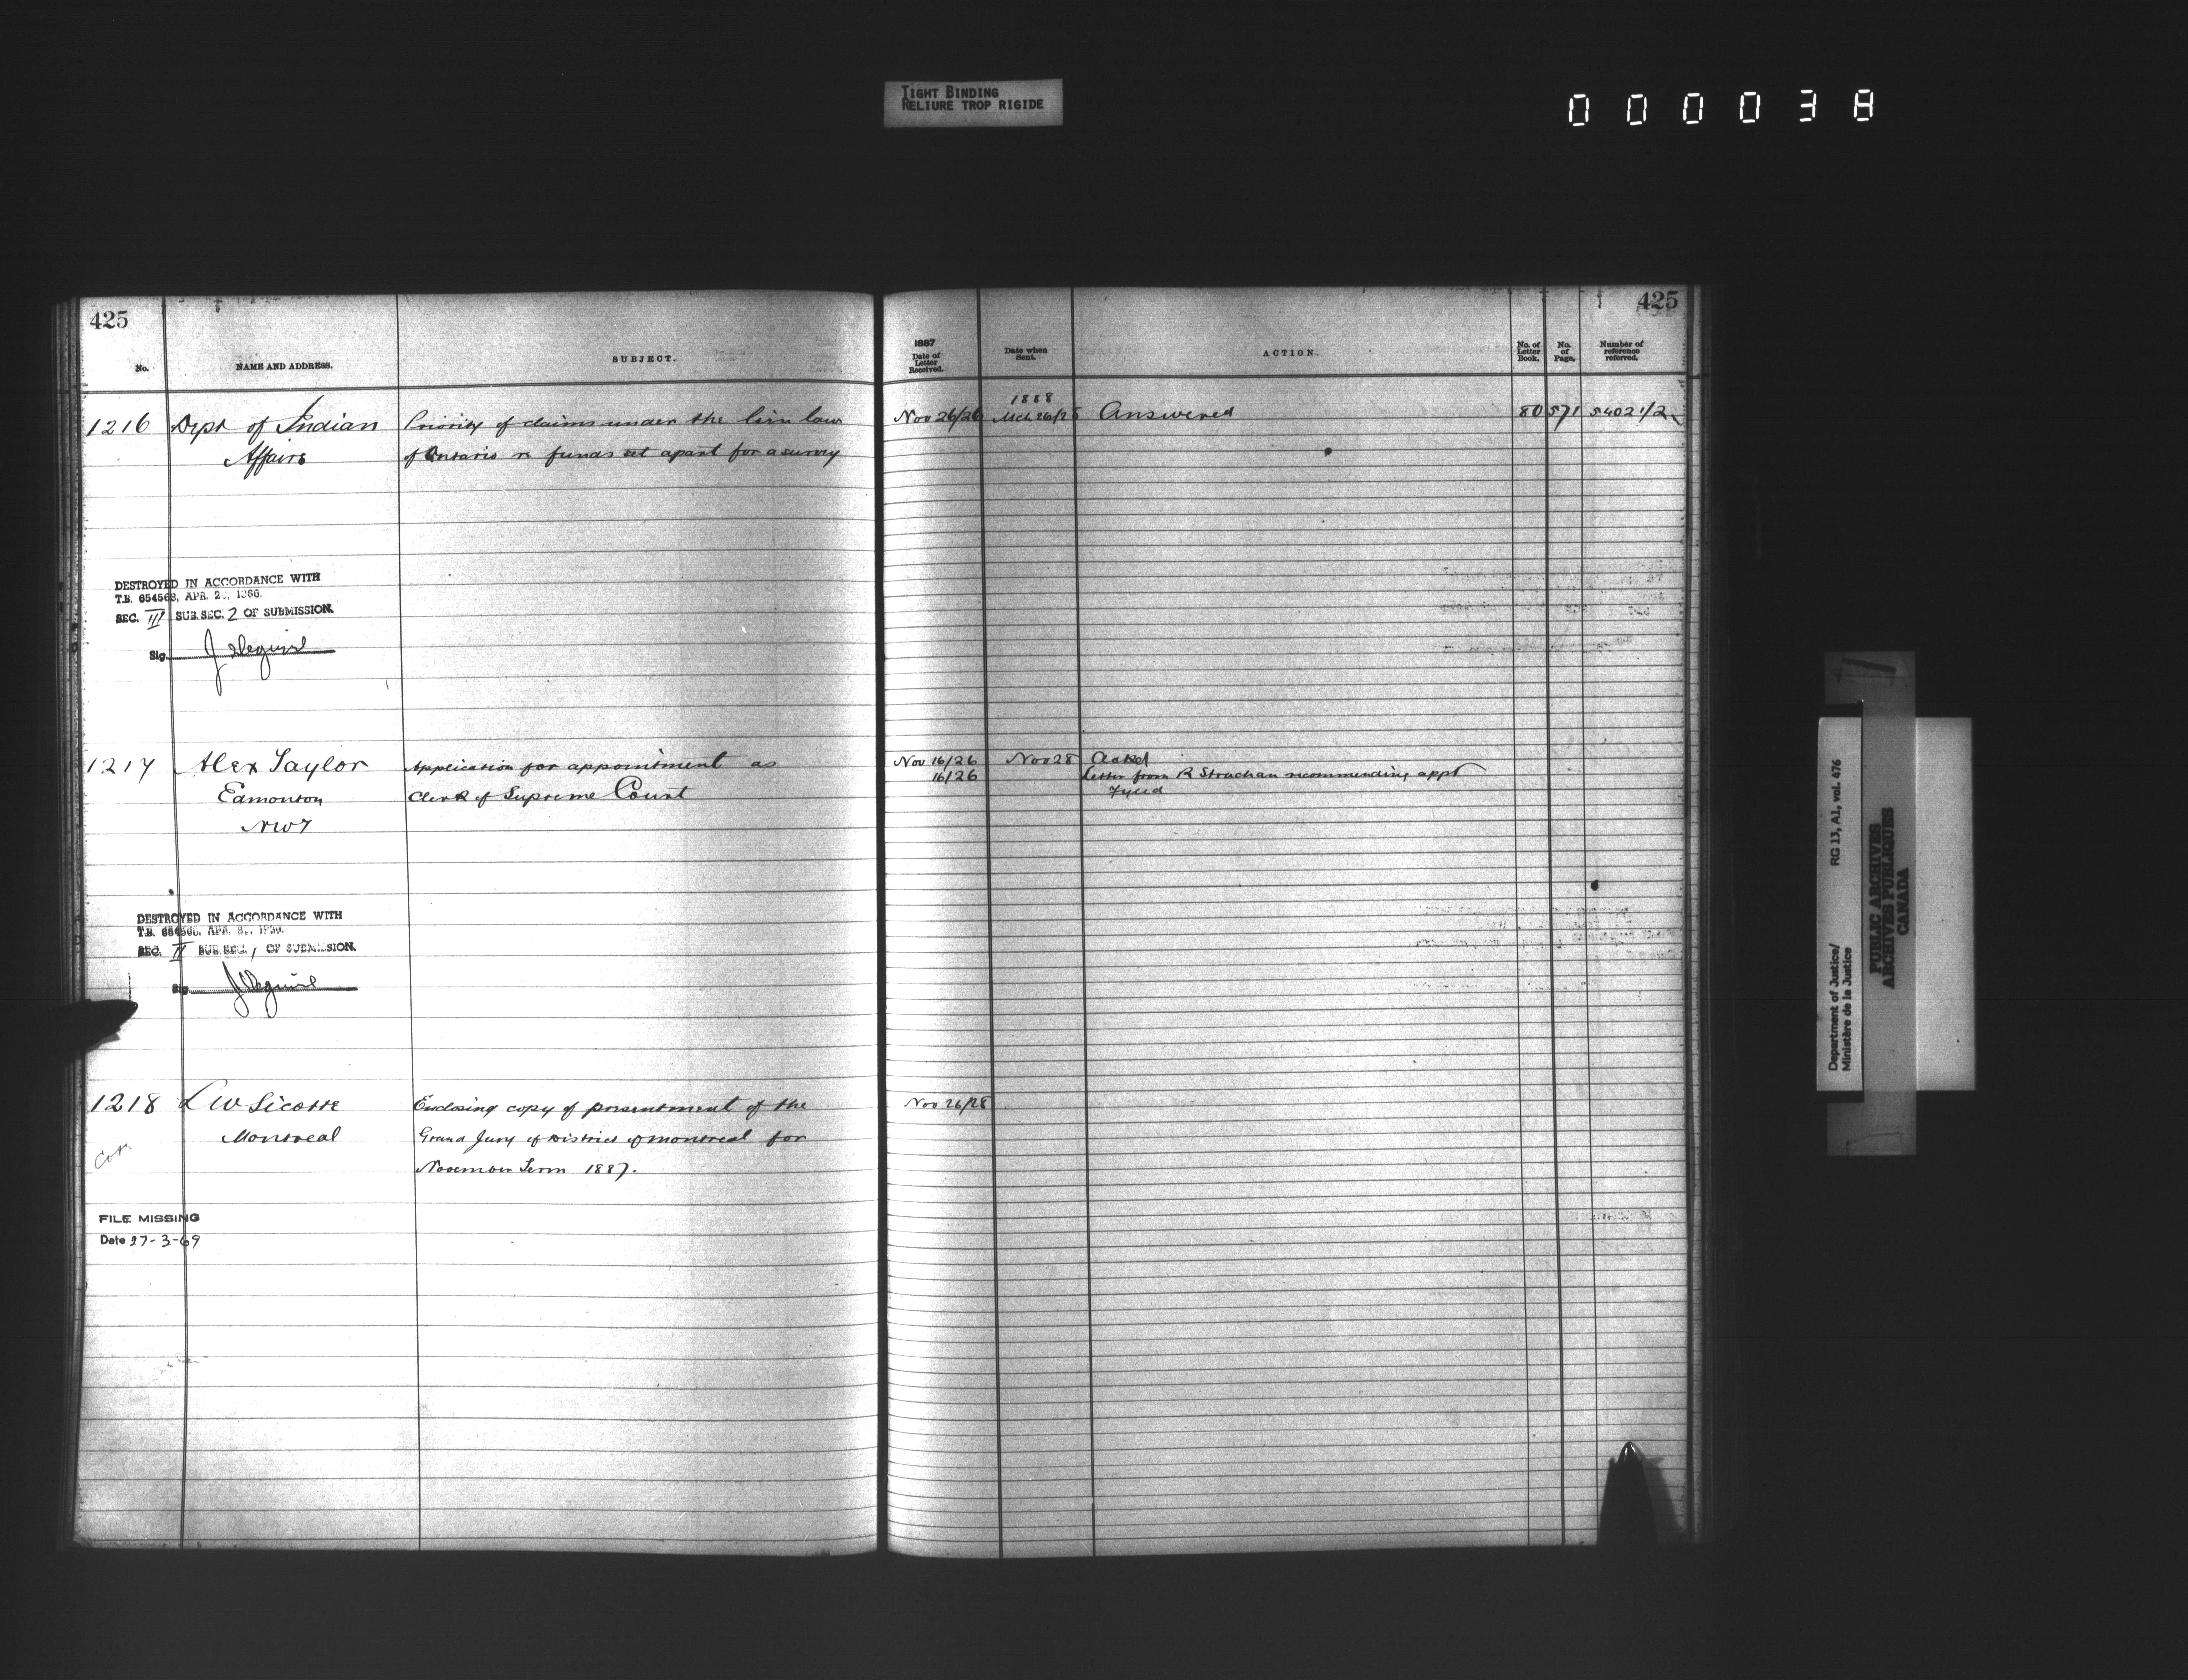 TIGHT BINDING
RELIURE TROP RIGIDE
000038
425
No.
NAME AND ADDRESS.
SUBJECT.
1216 Dept of Indian
Affairs
Priority of claims under the lien law
of Ontario re funds set apart for a survey
DESTROYED IN ACCORDANCE WITH
T.B. 654563, APR. 1966.
SEC. III SUB.SEC. 2 OF SUBMISSION.
Sig.
1217 Alex Taylor
Edmonton
NWT
Application for appointment as
Clerk of Supreme Court
DESTROYED IN ACCORDANCE WITH
T.B. APR.
SEC. II SUB.SEC. 1 OF SUBMISSION.
Sig.
1218 L W Sicotte
Montreal
Enclosing copy of presentment of the
Grand Jury of District of Montreal for
November Term 1887.
FILE MISSING
Date 27-3-69
425
1887
Date of
Letter
Received.
Date when
Sent.
ACTION.
No. of
Letter
Book.
No.
of
Page.
Number of
reference
referred.
1888
Nov 26/26 Mch 26/28 Answered 80 571 5402 1/2
Nov 16/26 Nov 28 Ackd
16/26 Letter from R Strachan recommending appt
Fyled
Nov 26/28
Department of Justice/
Ministère de la Justice
RG 13, A1, vol. 476
PUBLIC ARCHIVES
ARCHIVES PUBLIQUES
CANADA